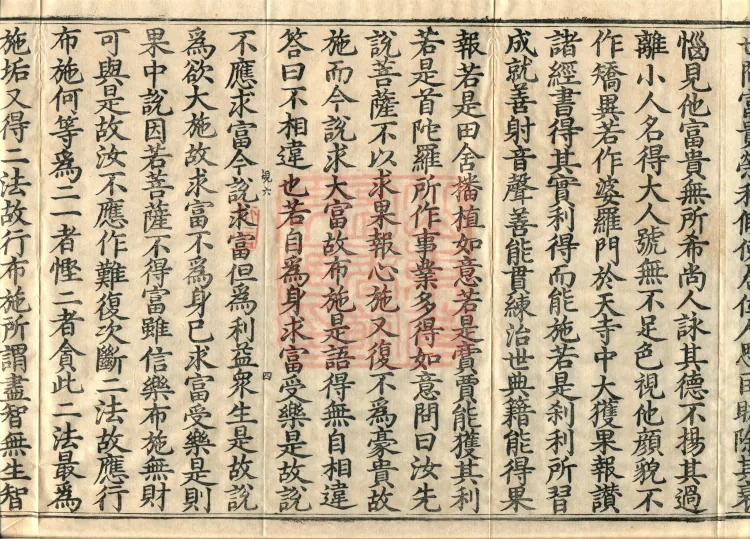 惱見他富貴無所希尚人詠其德不揚其過
離小人名得大人號無不足色視他顔貌不
作矯異若作婆羅門於天寺中大獲果報讚
諸經書得其實利得而能施若是刹利所習
成就善射音聲善能貫練治世典籍能得果
報若是田舍播植如意若是賣賈能獲其利
若是首陀羅所作事業多得如意問曰汝先
說菩薩不以求果報心施又復不爲豪貴故
施而今說求大富故布施是語得無自相違
答曰不相違也若自爲身求富受樂是故說
不應求富今說求富但爲利益衆生是故說
爲欲大施故求富不爲身己求富受樂是則
果中說因若菩薩不得富雖信樂布施無財
可與是故汝不應作難復次斷二法故應行
布施何等爲二一者慳二者貪此二法最爲
施垢又得二法故行布施所謂盡智無生智